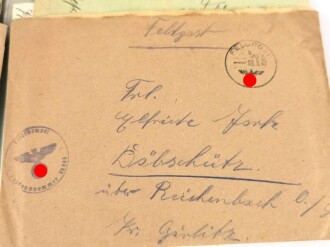 Feldpost
FELDPOST
Frl.
Elfriede Jork
Döbschütz
über Reichenbach O/
Kr. Görlitz.